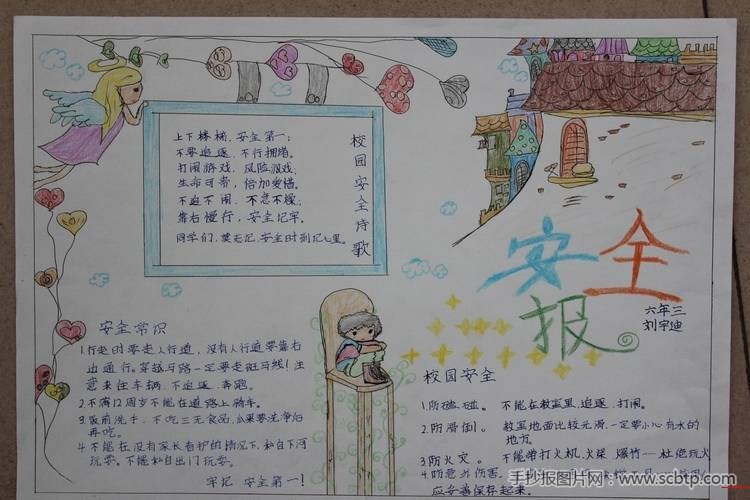 上下楼梯，安全第一；
不要追逐，不行拥堵。
打闹游戏，风险游戏；
生命可贵，倍加爱惜。
不追不闹，不急不躁；
靠右慢行，安全记牢。
同学们，莫忘记，安全时刻记心里。
校园安全诗歌
安全
报
六年三
刘宇迪
安全常识
1.行走时要走人行道，没有人行道要靠右
边通行。穿越马路一定要走斑马线！注
意来往车辆，不追逐、奔跑。
2.不满12周岁不能在道路上骑车。
3.饭前洗手，不吃三无食品，瓜果要洗净后
再吃。
4.不能在没有家长看护的情况下，私自下河
玩耍。不能私自出门玩耍。
牢记 安全第一！
校园安全
1.防磕碰。 不能在教室里追逐、打闹。
2.防滑倒。 教室地面比较光滑，一定要小心有水的
地方。
3.防火灾。 不能带打火机、火柴、爆竹……杜绝玩火
4.防意外伤害。
应妥善保存起来。
手抄报图片网：www.scbtp.com